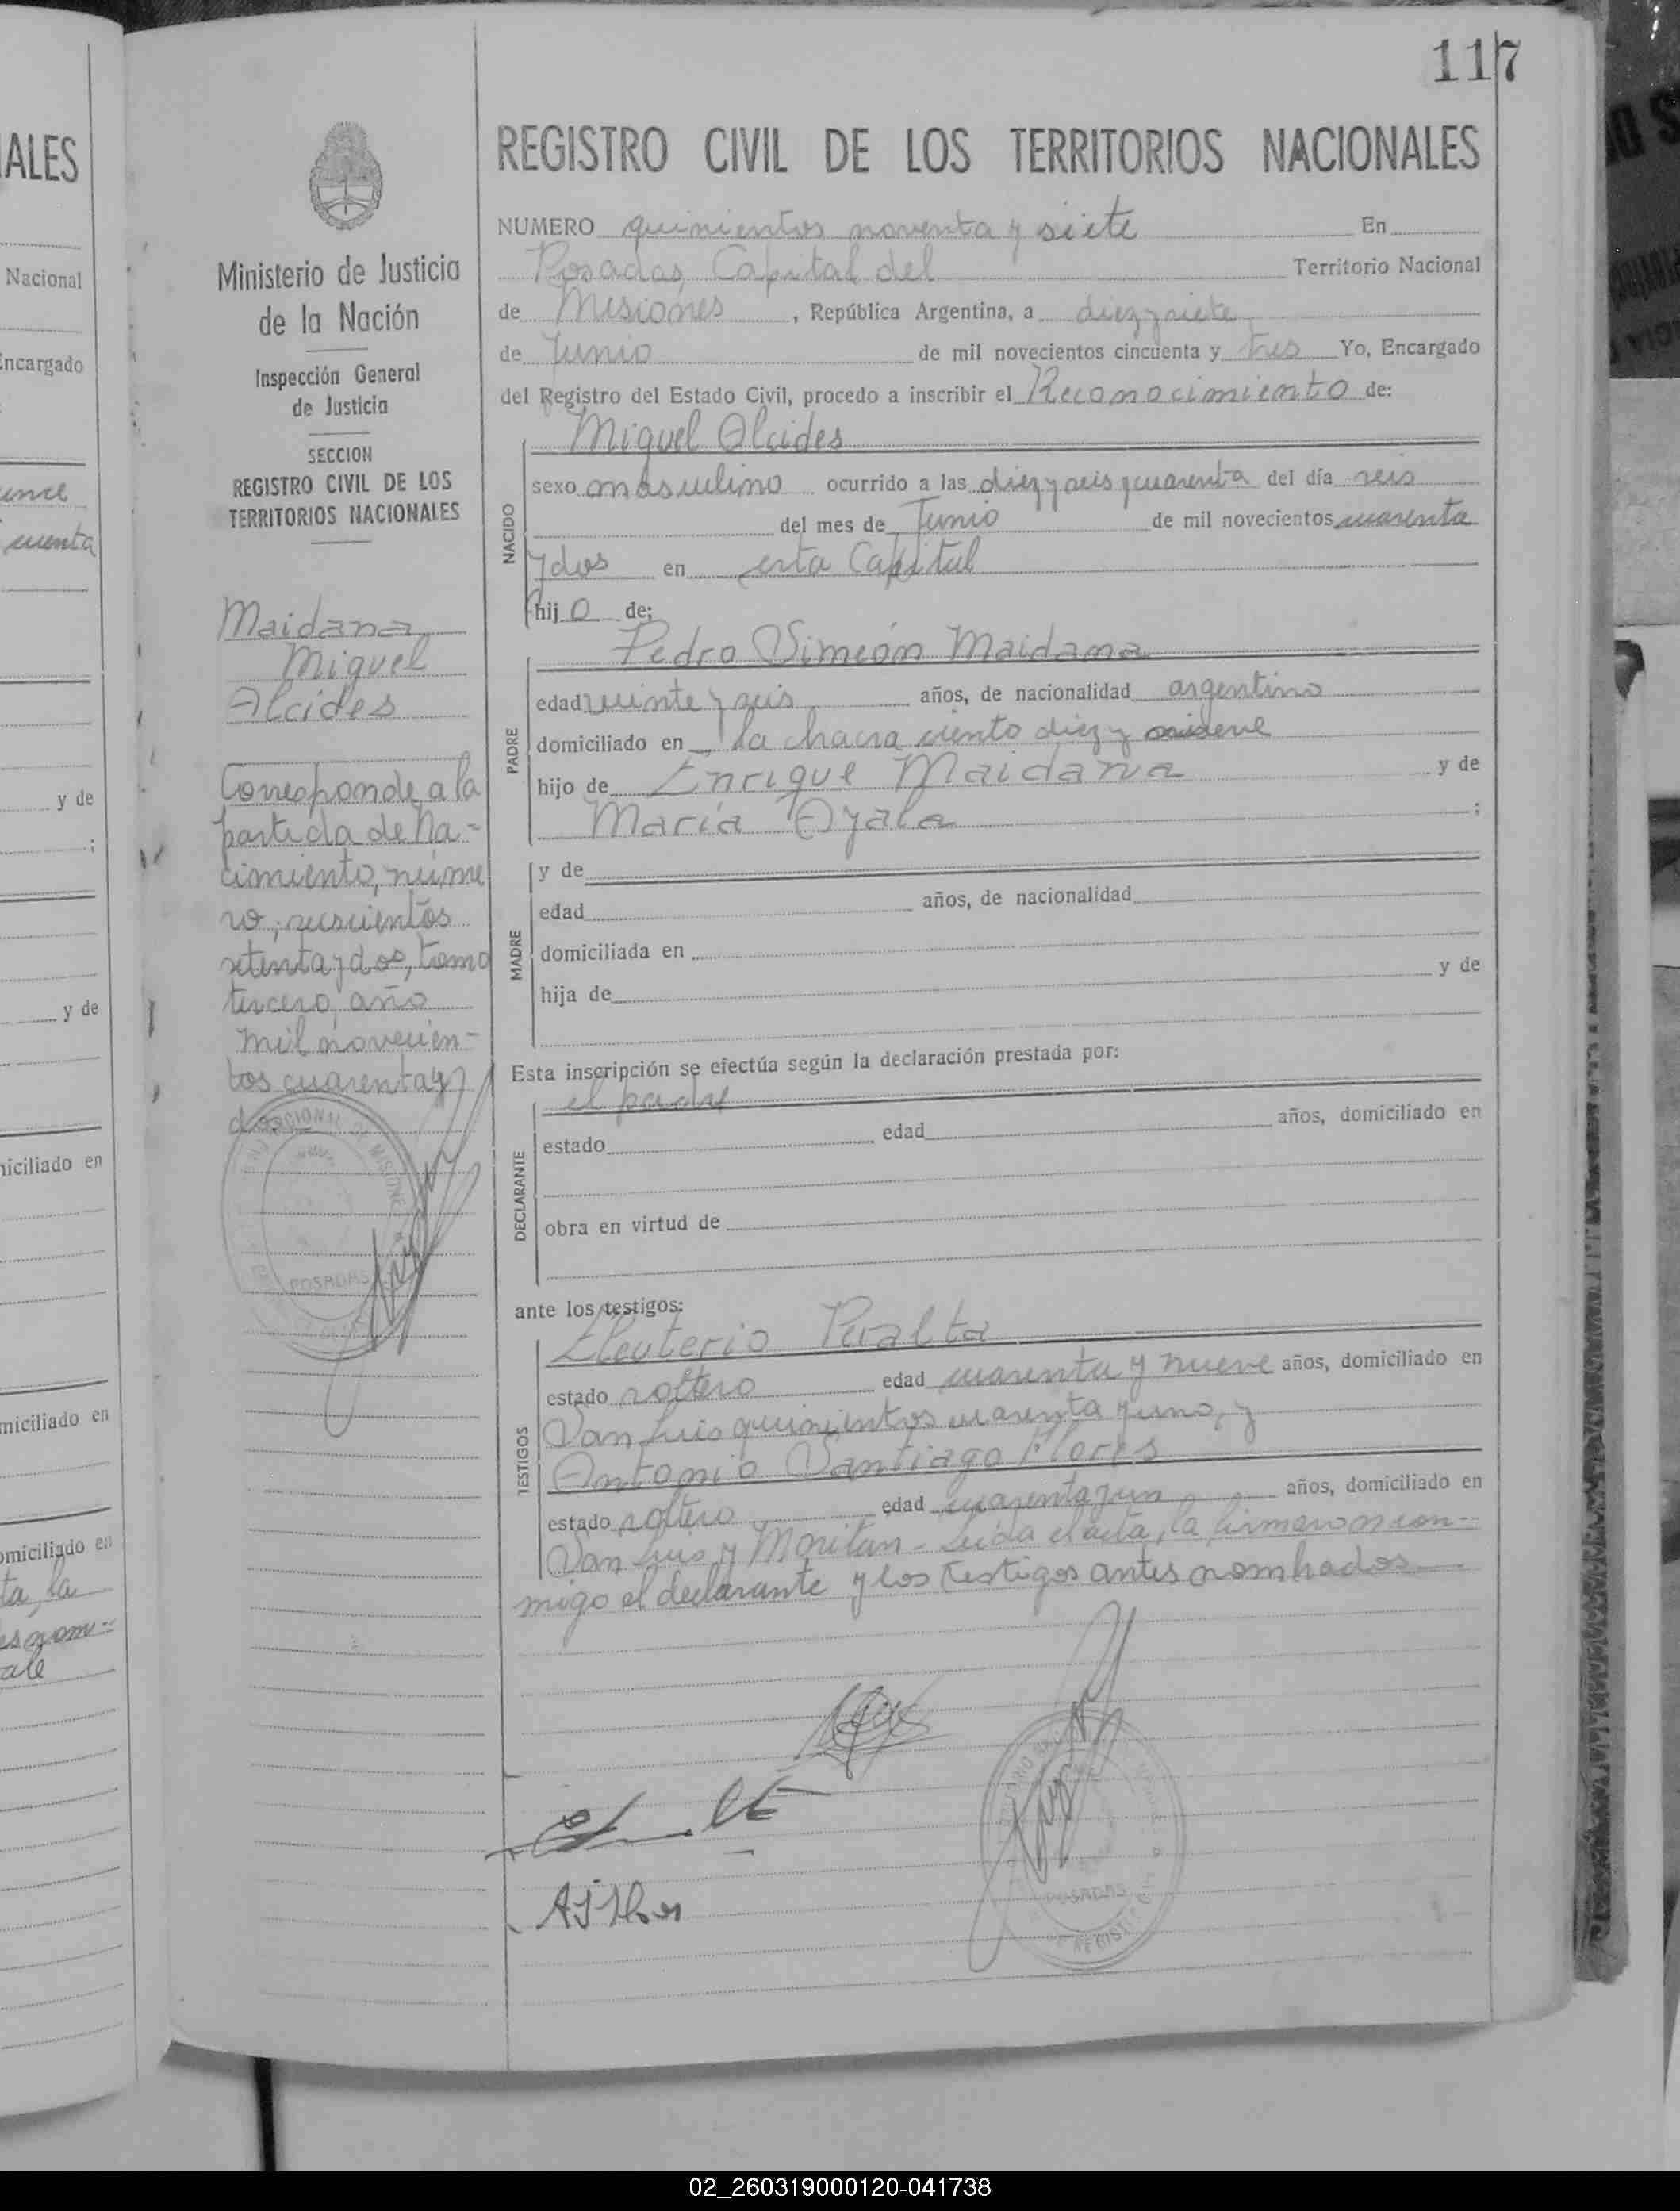 117
ALES
Nacional
Encargado
cuenta
y de
;
y de
miciliado en
miciliado en
omiciliado en
ta, la
Ministerio de Justicia
de la Nación
Inspección General
de Justicia
SECCION
REGISTRO CIVIL DE LOS
TERRITORIOS NACIONALES
Maidana
Miguel
Alcides
Corresponde a la
partida de Na-
cimiento, núme
ro, seiscientos
setenta y dos, tomo
tercero, año
mil novecien-
tos cuarenta y
dos
POSADAS
REGISTRO CIVIL DE LOS TERRITORIOS NACIONALES
NUMERO quinientos noventa y siete En
Posadas, Capital del Territorio Nacional
de Misiones, República Argentina, a diez y siete
de Junio de mil novecientos cincuenta y tres Yo, Encargado
del Registro del Estado Civil, procedo a inscribir el Reconocimiento de:
NACIDO
Miguel Alcides
sexo masculino ocurrido a las diez y seis y cuarenta del día seis
del mes de Junio de mil novecientos cuarenta
y dos en esta Capital
hijo de:
PADRE
Pedro Simeón Maidana
edad veinte y seis años, de nacionalidad argentino
domiciliado en la chacra ciento diez y
hijo de Enrique Maidana y de
María Ayala ;
MADRE
y de
edad años, de nacionalidad
domiciliada en
hija de y de
Esta inscripción se efectúa según la declaración prestada por:
DECLARANTE
el padre
estado edad años, domiciliado en
obra en virtud de
ante los testigos:
TESTIGOS
Eleuterio Peralta
estado soltero edad cuarenta y nueve años, domiciliado en
San Luis quinientos cuarenta y uno, y
Antonio Santiago Flores
estado soltero edad cuarenta y un años, domiciliado en
San Luis y Moritan - Leída el acta, la firmaron con-
migo el declarante y los testigos antes nombrados
POSADAS
02_260319000120-041738